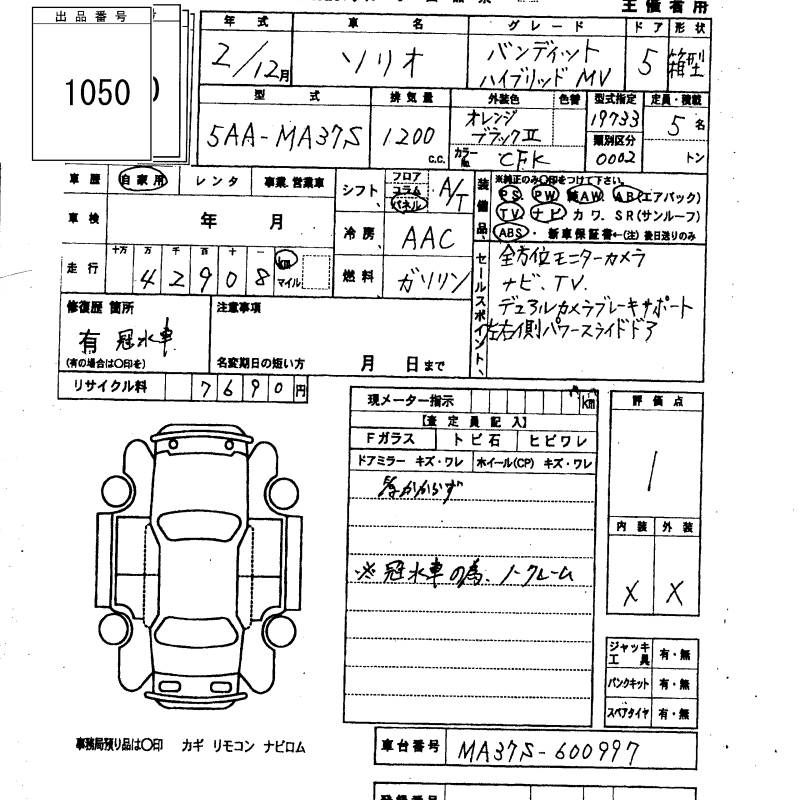 主催者用
出品番号
1050
年式 車名 グレード ドア 形状
2/12月 ソリオ バンディット ハイブリッド MV 5 箱型
型式 排気量 外装色 色替 型式指定 定員・積載
5AA-MA37S 1200 c.c. オレンジ ブラックⅡ 19733 5名
類別区分
カラーNo. CFK 0002 トン
車歴 自家用 レンタ 事業.営業車
シフト フロア コラム パネル A/T
装備品 ※純正のみ○印をつけて下さい。
PS. PW. AW. AB(エアバック)
TV. ナビ カワ. SR(サンルーフ)
ABS・ 新車保証書←(注)後日送りのみ
車検 年 月
冷房 AAC
走行 十万 万 千 百 十 一 km マイル
4 2 9 0 8
燃料 ガソリン
セールスポイント
全方位モニターカメラ
ナビ、TV.
デュアルカメラブレーキサポート
左右側パワースライドドア
修復歴 箇所 注意事項
有 冠水車
(有の場合は○印を) 名変期日の短い方 月 日まで
リサイクル料 7690円
現メーター指示 km
【査定員記入】
Fガラス トビ石 ヒビワレ
ドアミラー キズ・ワレ ホイール(CP) キズ・ワレ
かからず
※冠水車の為、ノークレーム
評価点
1
内装 外装
X X
ジャッキ工具 有・無
パンクキット 有・無
スペアタイヤ 有・無
事務局預り品は○印 カギ リモコン ナビロム
車台番号 MA37S-600997